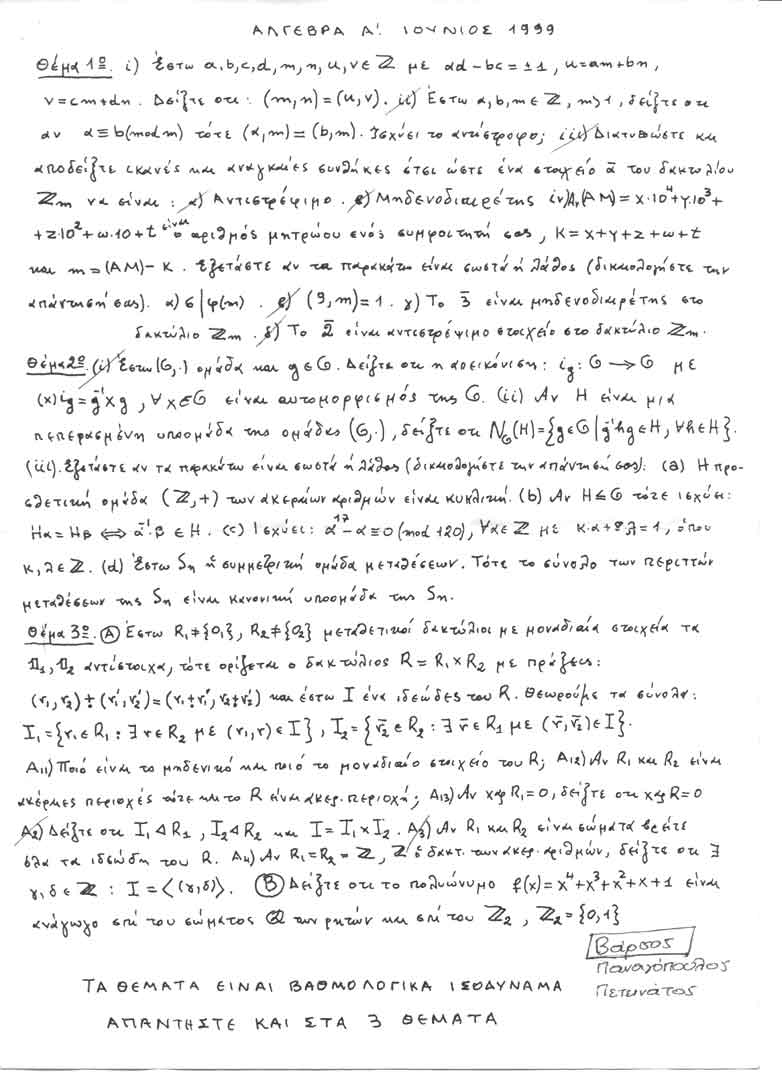 ΑΛΓΕΒΡΑ Α'. ΙΟΥΝΙΟΣ 1999
Θέμα 1º. i) Έστω a,b,c,d,m,n,u,v∈ℤ με ad-bc=±1, u=am+bn,
v=cm+dn. Δείξτε οτι: (m,n)=(u,v). ii) Έστω a,b,m∈ℤ, m>1, δείξτε οτι
αν a≡b(mod m) τότε (a,m)=(b,m). Ισχύει το αντίστροφο; iii) Διατυπώστε και
αποδείξτε ικανές και αναγκαίες συνθήκες έτσι ώστε ένα στοιχείο ā του δακτυλίου
ℤm να είναι: α) Αντιστρέψιμο. β) Μηδενοδιαιρέτης iv) Αν (ΑΜ)=x·10⁴+y·10³+
+z·10²+ω·10+t είναι ο αριθμός μητρώου ενός συμφοιτητή σας, K=x+y+z+ω+t
και m=(ΑΜ)-K. Εξετάστε αν τα παρακάτω είναι σωστά ή λάθος (δικαιολογήστε την
απάντησή σας). α) 6|φ(m). β) (9,m)=1. γ) Το 3̄ είναι μηδενοδιαιρέτης στο
δακτύλιο ℤm. δ) Το 2̄ είναι αντιστρέψιμο στοιχείο στο δακτύλιο ℤm.
Θέμα 2º. (i) Έστω (G,·) ομάδα και g∈G. Δείξτε οτι η απεικόνιση: ig: G→G με
(x)ig=g⁻¹xg, ∀x∈G είναι αυτομορφισμός της G. (ii) Αν H είναι μια
πεπερασμένη υποομάδα της ομάδας (G,·), δείξτε οτι N_G(H)={g∈G|g⁻¹hg∈H, ∀h∈H}.
(iii). Εξετάστε αν τα παρακάτω είναι σωστά ή λάθος (δικαιολογήστε την απάντησή σας): (a) Η προ-
σθετική ομάδα (ℤ,+) των ακεραίων αριθμών είναι κυκλική. (b) Αν H≤G τότε ισχύει:
Hα=Hβ ⟺ α⁻¹·β∈H. (c) Ισχύει: α¹⁷-α≡0(mod 120), ∀α∈ℤ με κ·α+8·λ=1, όπου
κ,λ∈ℤ. (d) Έστω Sn η συμμετρική ομάδα μεταθέσεων. Τότε το σύνολο των περιττών
μεταθέσεων της Sn είναι κανονική υποομάδα της Sn.
Θέμα 3º. Α Έστω R₁≠{0₁}, R₂≠{0₂} μεταθετικοί δακτύλιοι με μοναδιαία στοιχεία τα
𝟙₁,𝟙₂ αντίστοιχα, τότε ορίζεται ο δακτύλιος R=R₁×R₂ με πράξεις:
(r₁,r₂)∔(r₁',r₂')=(r₁∔r₁',r₂∔r₂') και έστω I ένα ιδεώδες του R. Θεωρούμε τα σύνολα:
I₁={r₁∈R₁: ∃r∈R₂ με (r₁,r)∈I}, I₂={r̄₂∈R₂: ∃r̄∈R₁ με (r̄,r̄₂)∈I}.
Α11) Ποιό είναι το μηδενικό και ποιό το μοναδιαίο στοιχείο του R; Α12) Αν R₁ και R₂ είναι
ακέραιες περιοχές τότε και το R είναι ακερ. περιοχή; Α13) Αν χαρR₁=0, δείξτε οτι χαρR=0
Α2) Δείξτε οτι I₁◁R₁, I₂◁R₂ και I=I₁×I₂. Α3) Αν R₁ και R₂ είναι σώματα βρείτε
όλα τα ιδεώδη του R. Α4) Αν R₁=R₂=ℤ, ℤ ο δακτ. των ακερ. αριθμών, δείξτε οτι ∃
γ,δ∈ℤ: I=⟨(γ,δ)⟩. Β Δείξτε οτι το πολυώνυμο f(x)=x⁴+x³+x²+x+1 είναι
ανάγωγο επί του σώματος ℚ των ρητών και επί του ℤ₂, ℤ₂={0,1}
Βάρσος
Παναγόπουλος
Πετυνάτος
ΤΑ ΘΕΜΑΤΑ ΕΙΝΑΙ ΒΑΘΜΟΛΟΓΙΚΑ ΙΣΟΔΥΝΑΜΑ
ΑΠΑΝΤΗΣΤΕ ΚΑΙ ΣΤΑ 3 ΘΕΜΑΤΑ